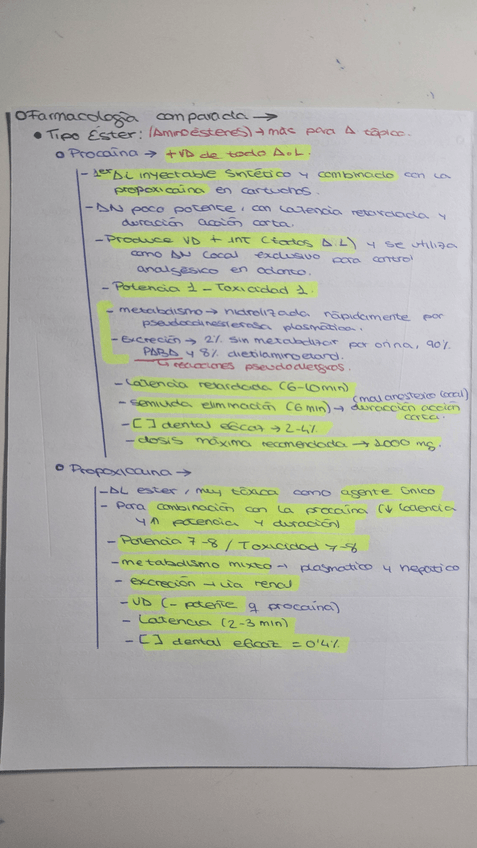 Farmacología comparada →
• Tipo Ester: (Aminoésteres) → más para Δ tópico.
Procaína → + VD de todo Δ.L.
- 1er ΔL inyectable sintético y combinado con la
propoxicaína en cartuchos.
- ΔN poco potente, con latencia retardada y
duración acción corta.
- Produce VD + int (todos Δ.L) y se utiliza
como ΔN Local exclusivo para control
analgésico en odonto.
- Potencia 1 - Toxicidad 1.
- metabolismo → hidrolizada rápidamente por
pseudocolinesterasa plasmática.
- Excreción → 2% sin metabolizar por orina, 90%
PABA y 8% dietilaminoetanol.
↳ reacciones pseudoalergicas.
- Latencia retardada (6-10 min)
- semivida eliminación (6 min) → duracción acción corta.
(mal anestésico local)
- [ ] dental eficaz → 2-4%
- dosis máxima recomendada → 1000 mg.
Propoxicaina →
- ΔL ester, muy tóxica como agente único
- Para combinación con la procaína (↓ latencia
y ↑ potencia y duración)
- Potencia 7-8 / Toxicidad 7-8
- metabolismo mixto → plasmatico y hepático
- excreción → via renal
- VD (- potente q procaína)
- Latencia (2-3 min)
- [ ] dental eficaz = 0'4%